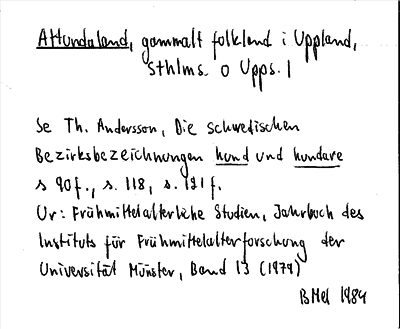 Attundaland, gammalt folkland i Uppland,
Sthlms. o Upps. l
Se Th. Andersson, Die schwedischen
Bezirksbezeichnungen hund und hundare
s 90f., s. 118, s. 121 f.
Ur: Frühmittelalterliche Studien, Jahrbuch des
Instituts für Frühmittelalterforschung der
Universität Münster, Band 13 (1979)
BHel 1984